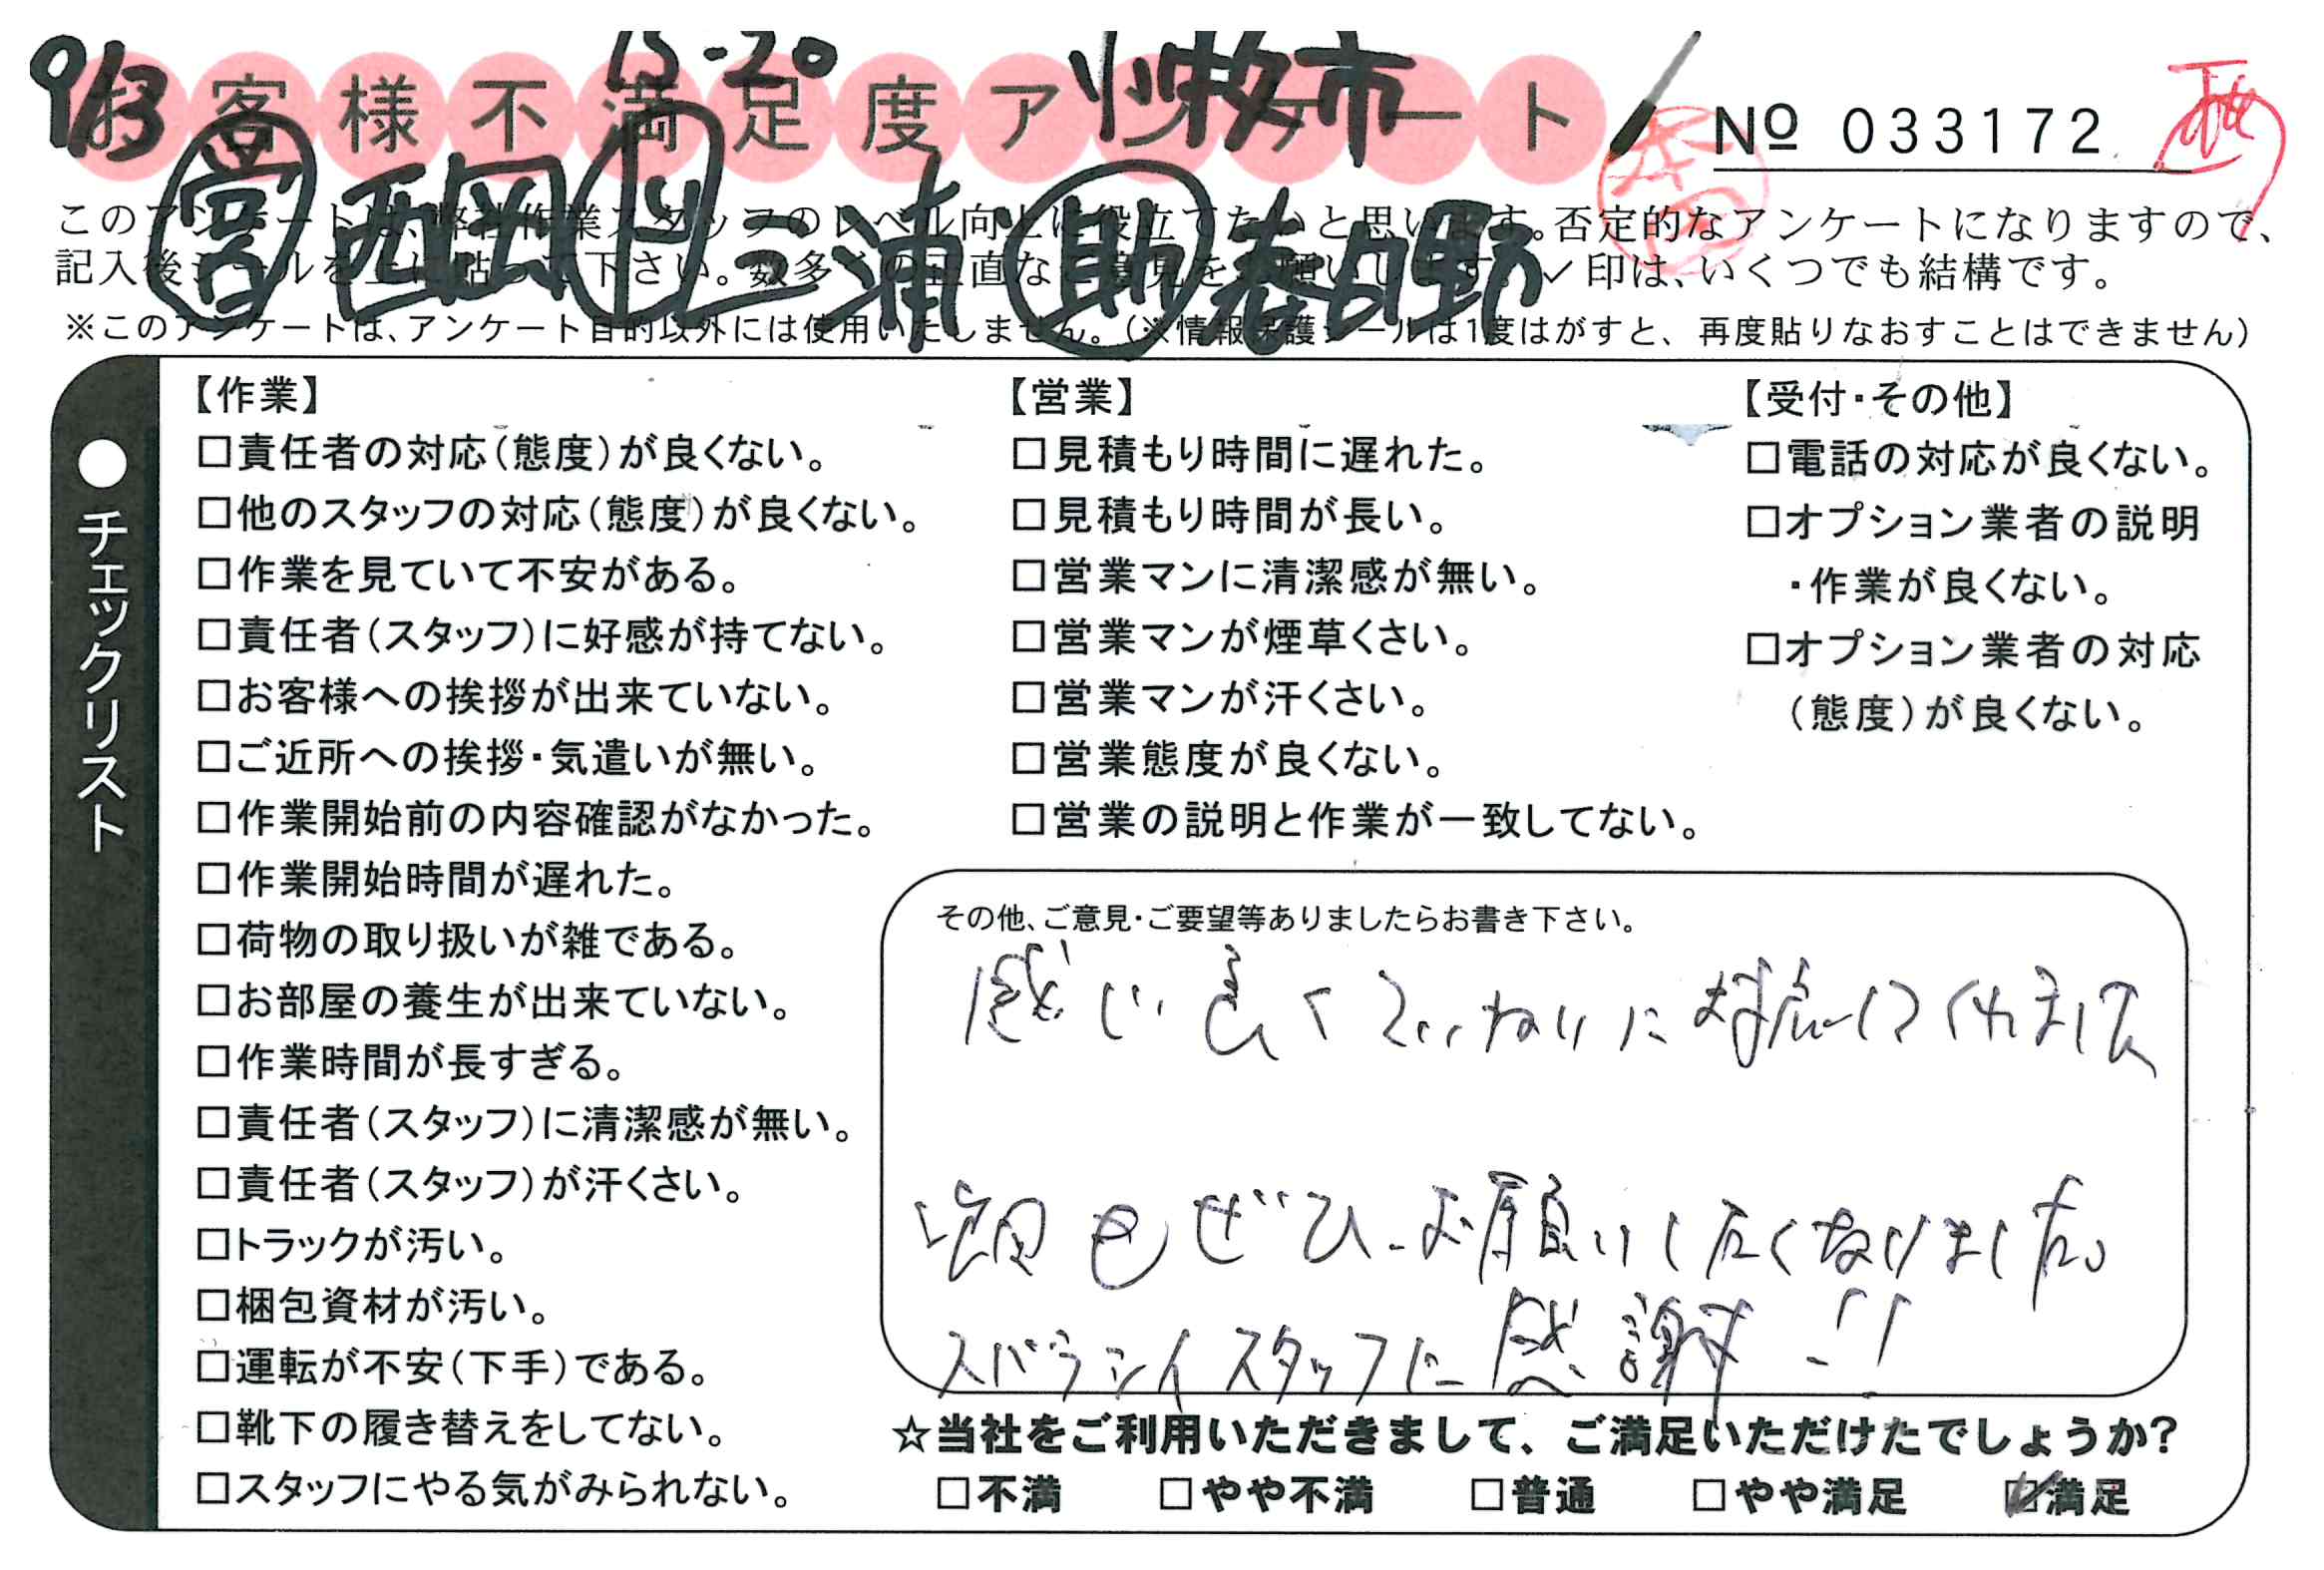 9/3 15-20 小牧市
お客様不満足度アンケート
№ 033172
営 西岡 リ 三浦 助 春日野
このアンケートは、弊社作業スタッフのレベル向上に役立てたいと思います。否定的なアンケートになりますので、
記入後シールを上に貼って下さい。数多くの正直なご意見をお願いします。✓印は、いくつでも結構です。
※このアンケートは、アンケート目的以外には使用いたしません。（※情報保護シールは1度はがすと、再度貼りなおすことはできません）
●チェックリスト
【作業】
□責任者の対応（態度）が良くない。
□他のスタッフの対応（態度）が良くない。
□作業を見ていて不安がある。
□責任者（スタッフ）に好感が持てない。
□お客様への挨拶が出来ていない。
□ご近所への挨拶・気遣いが無い。
□作業開始前の内容確認がなかった。
□作業開始時間が遅れた。
□荷物の取り扱いが雑である。
□お部屋の養生が出来ていない。
□作業時間が長すぎる。
□責任者（スタッフ）に清潔感が無い。
□責任者（スタッフ）が汗くさい。
□トラックが汚い。
□梱包資材が汚い。
□運転が不安（下手）である。
□靴下の履き替えをしてない。
□スタッフにやる気がみられない。
【営業】
□見積もり時間に遅れた。
□見積もり時間が長い。
□営業マンに清潔感が無い。
□営業マンが煙草くさい。
□営業マンが汗くさい。
□営業態度が良くない。
□営業の説明と作業が一致してない。
【受付・その他】
□電話の対応が良くない。
□オプション業者の説明
・作業が良くない。
□オプション業者の対応
（態度）が良くない。
その他、ご意見・ご要望等ありましたらお書き下さい。
感じ良くていねいに対応してくれまして
次回もぜひお願いしたくなりました。
スバラシイスタッフに感謝!!
☆当社をご利用いただきまして、ご満足いただけたでしょうか？
□不満 □やや不満 □普通 □やや満足 ☑満足